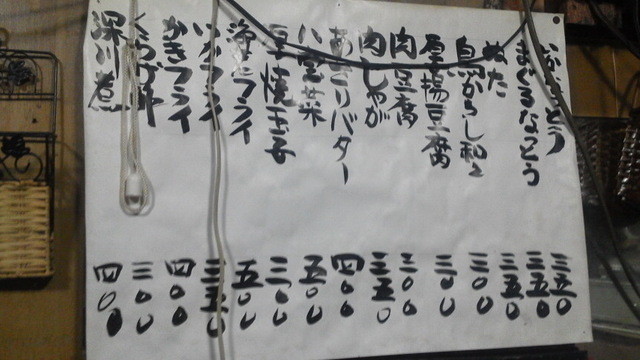 いかなっとう 三五〇
まぐろなっとう 三五〇
ぬた 三五〇
鳥からし和え 三〇〇
厚揚豆腐 三〇〇
肉豆腐 三〇〇
肉じゃが 三五〇
あさりバター 四〇〇
八宝菜 五〇〇
厚焼玉子 三〇〇
海老フライ 五〇〇
いかフライ 三五〇
かきフライ 四〇〇
くらげ酢 三〇〇
深川煮 四〇〇